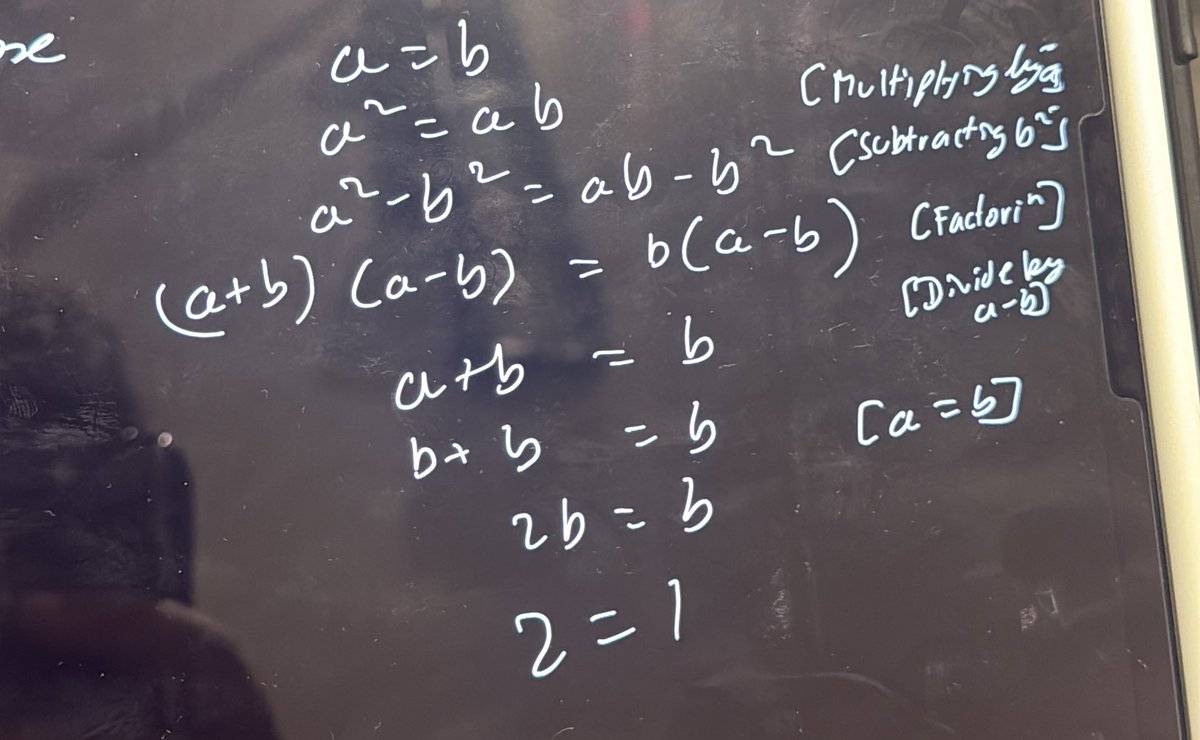 a = b
a² = ab [Multiplying by a]
a² - b² = ab - b² [Subtracting b²]
(a+b) (a-b) = b(a-b) [Factoriⁿ]
[Divide by a-b]
a+b = b
b+ b = b [a = b]
2b = b
2 = 1